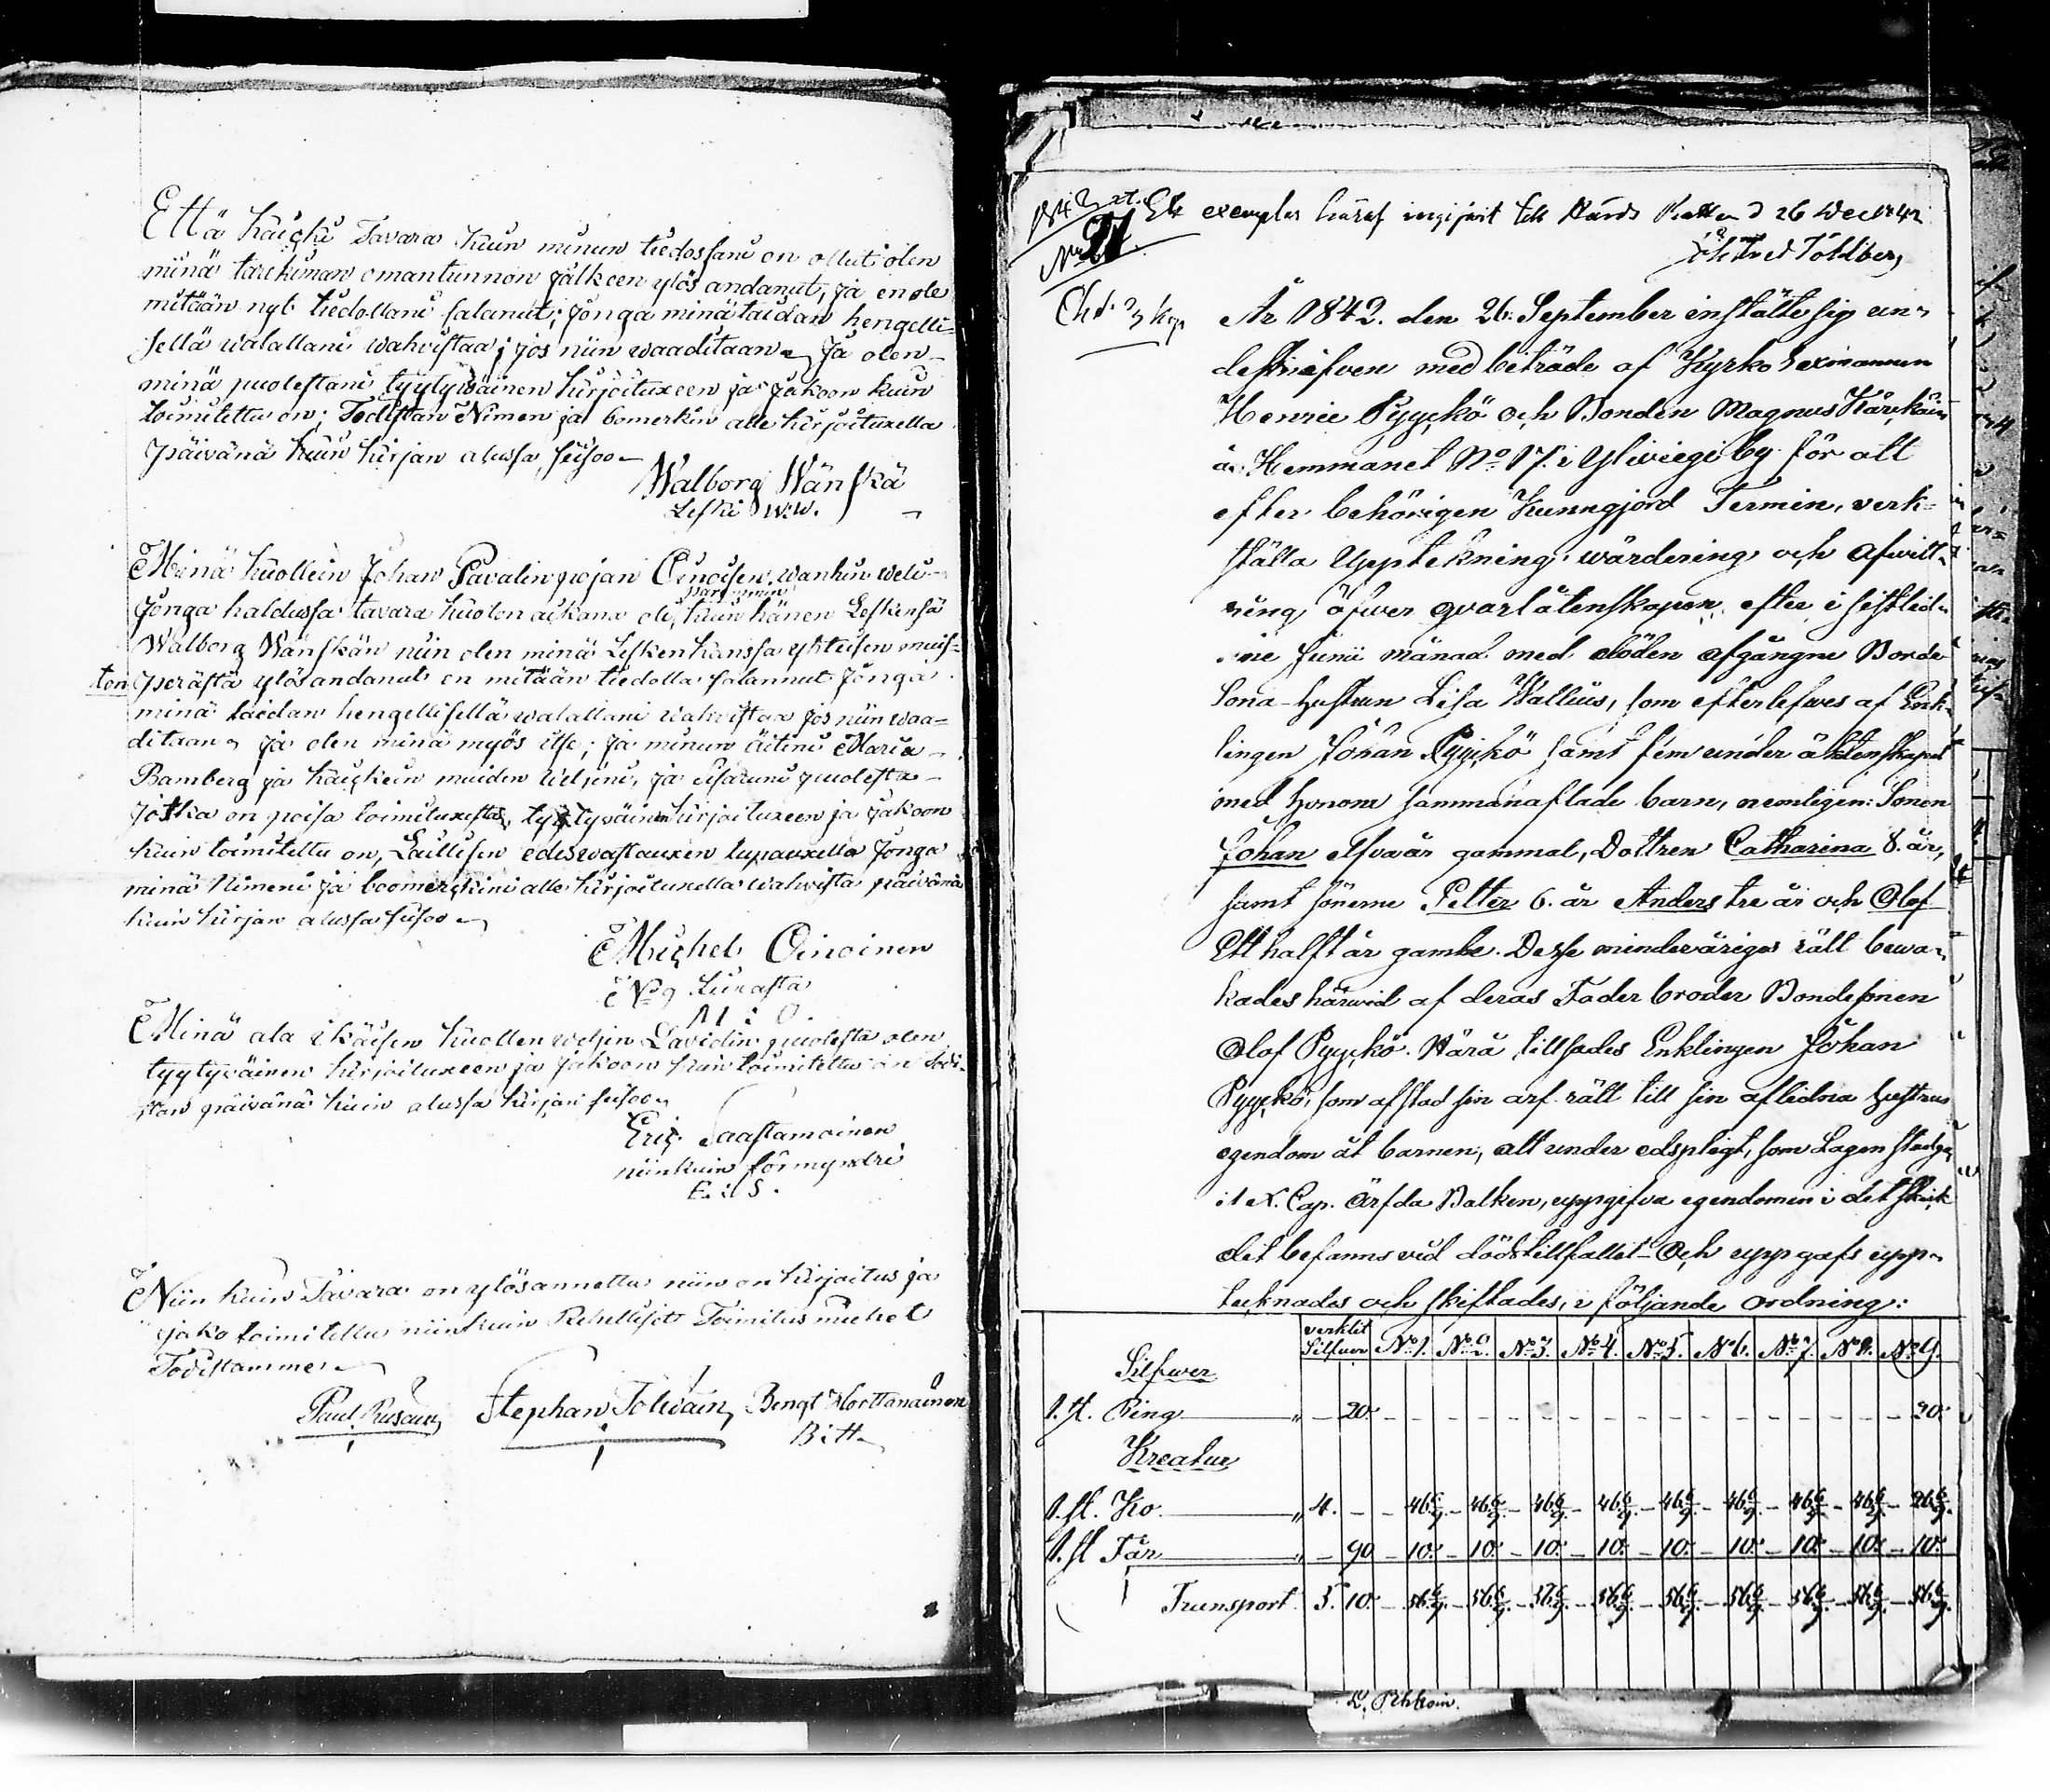 Että kaicki Tavara kuin minun tiedossani on ollut olen
minä tarckiman omantunnon jälkeen ylös andanut, ja en ole
mitään nyt tiedollani salanut; Jonga minä taidan hengelli-
sellä walallani wahvistaa; jos niin waaditaan. Ja olen
minä puolestani tyytywäinen kirjoituxeen ja jakoon kuin
toimitettu on; Todistan Nimen ja bomerkin alle kirjoituxella
päivänä kuin kirjan alussa seisoo
Walborg Wänskä
Leski W:W.
Minä kuollein Johan Pavalin pojan Oinoisen, wanhin weli
paremmin
Jonga haldussa tavara kuolon aikana oli, kuin hänen Leskensä
Walborg Wänskän niin olen minä Lesken kanssa ythteisen muis-
ton perästä ylösandanut en mitään tiedolla salannut Jonga
minä taidan hengellisellä walallani wahvistaa jos niin waa-
ditaan, ja olen minä myös itse; ja minun äitini Maria
Bamberg ja kaickein muiden veljeni, ja sisaruni puolesta
Jotka on poisa toimituxesta, tyytyväinen kirjoituxeen ja jakoon
kuin toimitettu on, Laillisen edeswastauxen lupauxella Jonga
minä Nimeni ja boomerckini alle kirjoituxella wahvista päivänä
kuin kirjan alussa seisoo
Michel Oinoinen
No 9
M : O.
Minä ala ikäisen kuollen weljen Davidin puolesta olen
tyytyväinen kirjoituxeen ja jakoon kuin toimitettu on todi-
stan päivänä kuin alussa kirjan seisoo
Eric Saastamoinen
niinkuin förmyndri
E. : S.
Niin kuin Tavara on ylösannettu niin on kirjoitus ja
jako toimitettu niinkuin Rehelliset Toimitus miehet
Todistamme
Paul Rusain Stephan Tolvain Bengt Horttanainen
B : H
1842 at. Ett exemplar häraf ingifvit till Härads Rätten d 26 Dec 1842
No 21.
År 1842. den 26. September instälte sig un-
detskrifven med beträde af Kyrko Sexmannen
Henric Pyyckö och Bonden Magnus Kärckäin
å Hemmanet No 17. i Yliviexi by för att
efter behörigen Kunngjord Termin, verk-
ställa Uppteckning, wärdering och Afwitt-
ring, öfwer qvarlåtenskapen efter i sistled-
ne Junii månad med döden afgångne Bonde
Sona-hustrun Lisa Wallius, som efterlefwes af Enk-
lingen Johan Pyyckö samt fem under äktenskapet
med honom sammanaflade barn, nemligen: Sonen
Johan elfva år gammal, Dottren Catharina 8. år,
samt sönerne Petter 6. år Anders tre år och Olof
Ett halft år gamle. Desse minderåriges rätt bewa-
kades härwid af deras Fader broder Bondesonen
Olof Pyyckö. Härå tillsades Enklingen Johan
Pyyckö, som afstod sin arf rätt till sin aflidna hustrus
egendom åt barnen, att under edsplegt, som Lagen stadgar
i 1 X. Cap. Ärfda Balken, uppgifva egendomen i det skick
det befanns vid dödstillfället Och uppgafs upp-
tecknades och skiftades, i följande ordning:
Silfwer verklit Silfwer No 1. No 2. No 3. No 4. No 5. No 6. No 7. No 8. No 9.
1. st. Ring " – 20. – – – – – – – – – 20.
Kreatur
1. st. Ko " 4. – – 46 6/9. – 46 6/9. – 46 6/9. – 46 6/9. – 46 6/9. – 46 6/9. – 46 6/9. – 46 6/9. – 26 6/9.
1. st Får " – 90 – 10. – 10. – 10. – 10. – 10. – 10. – 10. – 10. – 10.
Transport 5. 10. – 56 6/9. – 56 6/9. – 56 6/9. – 56 6/9. – 56 6/9. – 56 6/9. – 56 6/9. – 56 6/9. – 56 6/9.